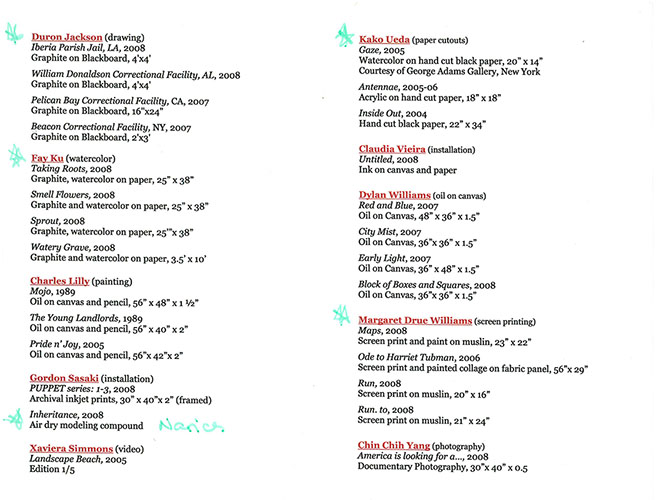 Duron Jackson (drawing)
Iberia Parish Jail, LA, 2008
Graphite on Blackboard, 4'x4'
William Donaldson Correctional Facility, AL, 2008
Graphite on Blackboard, 4'x4'
Pelican Bay Correctional Facility, CA, 2007
Graphite on Blackboard, 16"x24"
Beacon Correctional Facility, NY, 2007
Graphite on Blackboard, 2'x3'
Fay Ku (watercolor)
Taking Roots, 2008
Graphite, watercolor on paper, 25" x 38"
Smell Flowers, 2008
Graphite and watercolor on paper, 25" x 38"
Sprout, 2008
Graphite, watercolor on paper, 25'"x 38"
Watery Grave, 2008
Graphite and watercolor on paper, 3.5' x 10'
Charles Lilly (painting)
Mojo, 1989
Oil on canvas and pencil, 56" x 48" x 1 ½"
The Young Landlords, 1989
Oil on canvas and pencil, 56" x 40" x 2"
Pride n' Joy, 2005
Oil on canvas and pencil, 56"x 42"x 2"
Gordon Sasaki (installation)
PUPPET series: 1-3, 2008
Archival inkjet prints, 30" x 40"x 2" (framed)
Inheritance, 2008
Air dry modeling compound
Xaviera Simmons (video)
Landscape Beach, 2005
Edition 1/5
Kako Ueda (paper cutouts)
Gaze, 2005
Watercolor on hand cut black paper, 20" x 14"
Courtesy of George Adams Gallery, New York
Antennae, 2005-06
Acrylic on hand cut paper, 18" x 18"
Inside Out, 2004
Hand cut black paper, 22" x 34"
Claudia Vieira (installation)
Untitled, 2008
Ink on canvas and paper
Dylan Williams (oil on canvas)
Red and Blue, 2007
Oil on Canvas, 48" x 36" x 1.5"
City Mist, 2007
Oil on Canvas, 36"x 36" x 1.5"
Early Light, 2007
Oil on Canvas, 36" x 48" x 1.5"
Block of Boxes and Squares, 2008
Oil on Canvas, 36"x 36" x 1.5"
Margaret Drue Williams (screen printing)
Maps, 2008
Screen print and paint on muslin, 23" x 22"
Ode to Harriet Tubman, 2006
Screen print and painted collage on fabric panel, 56"x 29"
Run, 2008
Screen print on muslin, 20" x 16"
Run. to, 2008
Screen print on muslin, 21" x 24"
Chin Chih Yang (photography)
America is looking for a..., 2008
Documentary Photography, 30"x 40" x 0.5